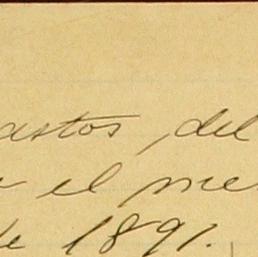 astos, del
el me
de 1891.